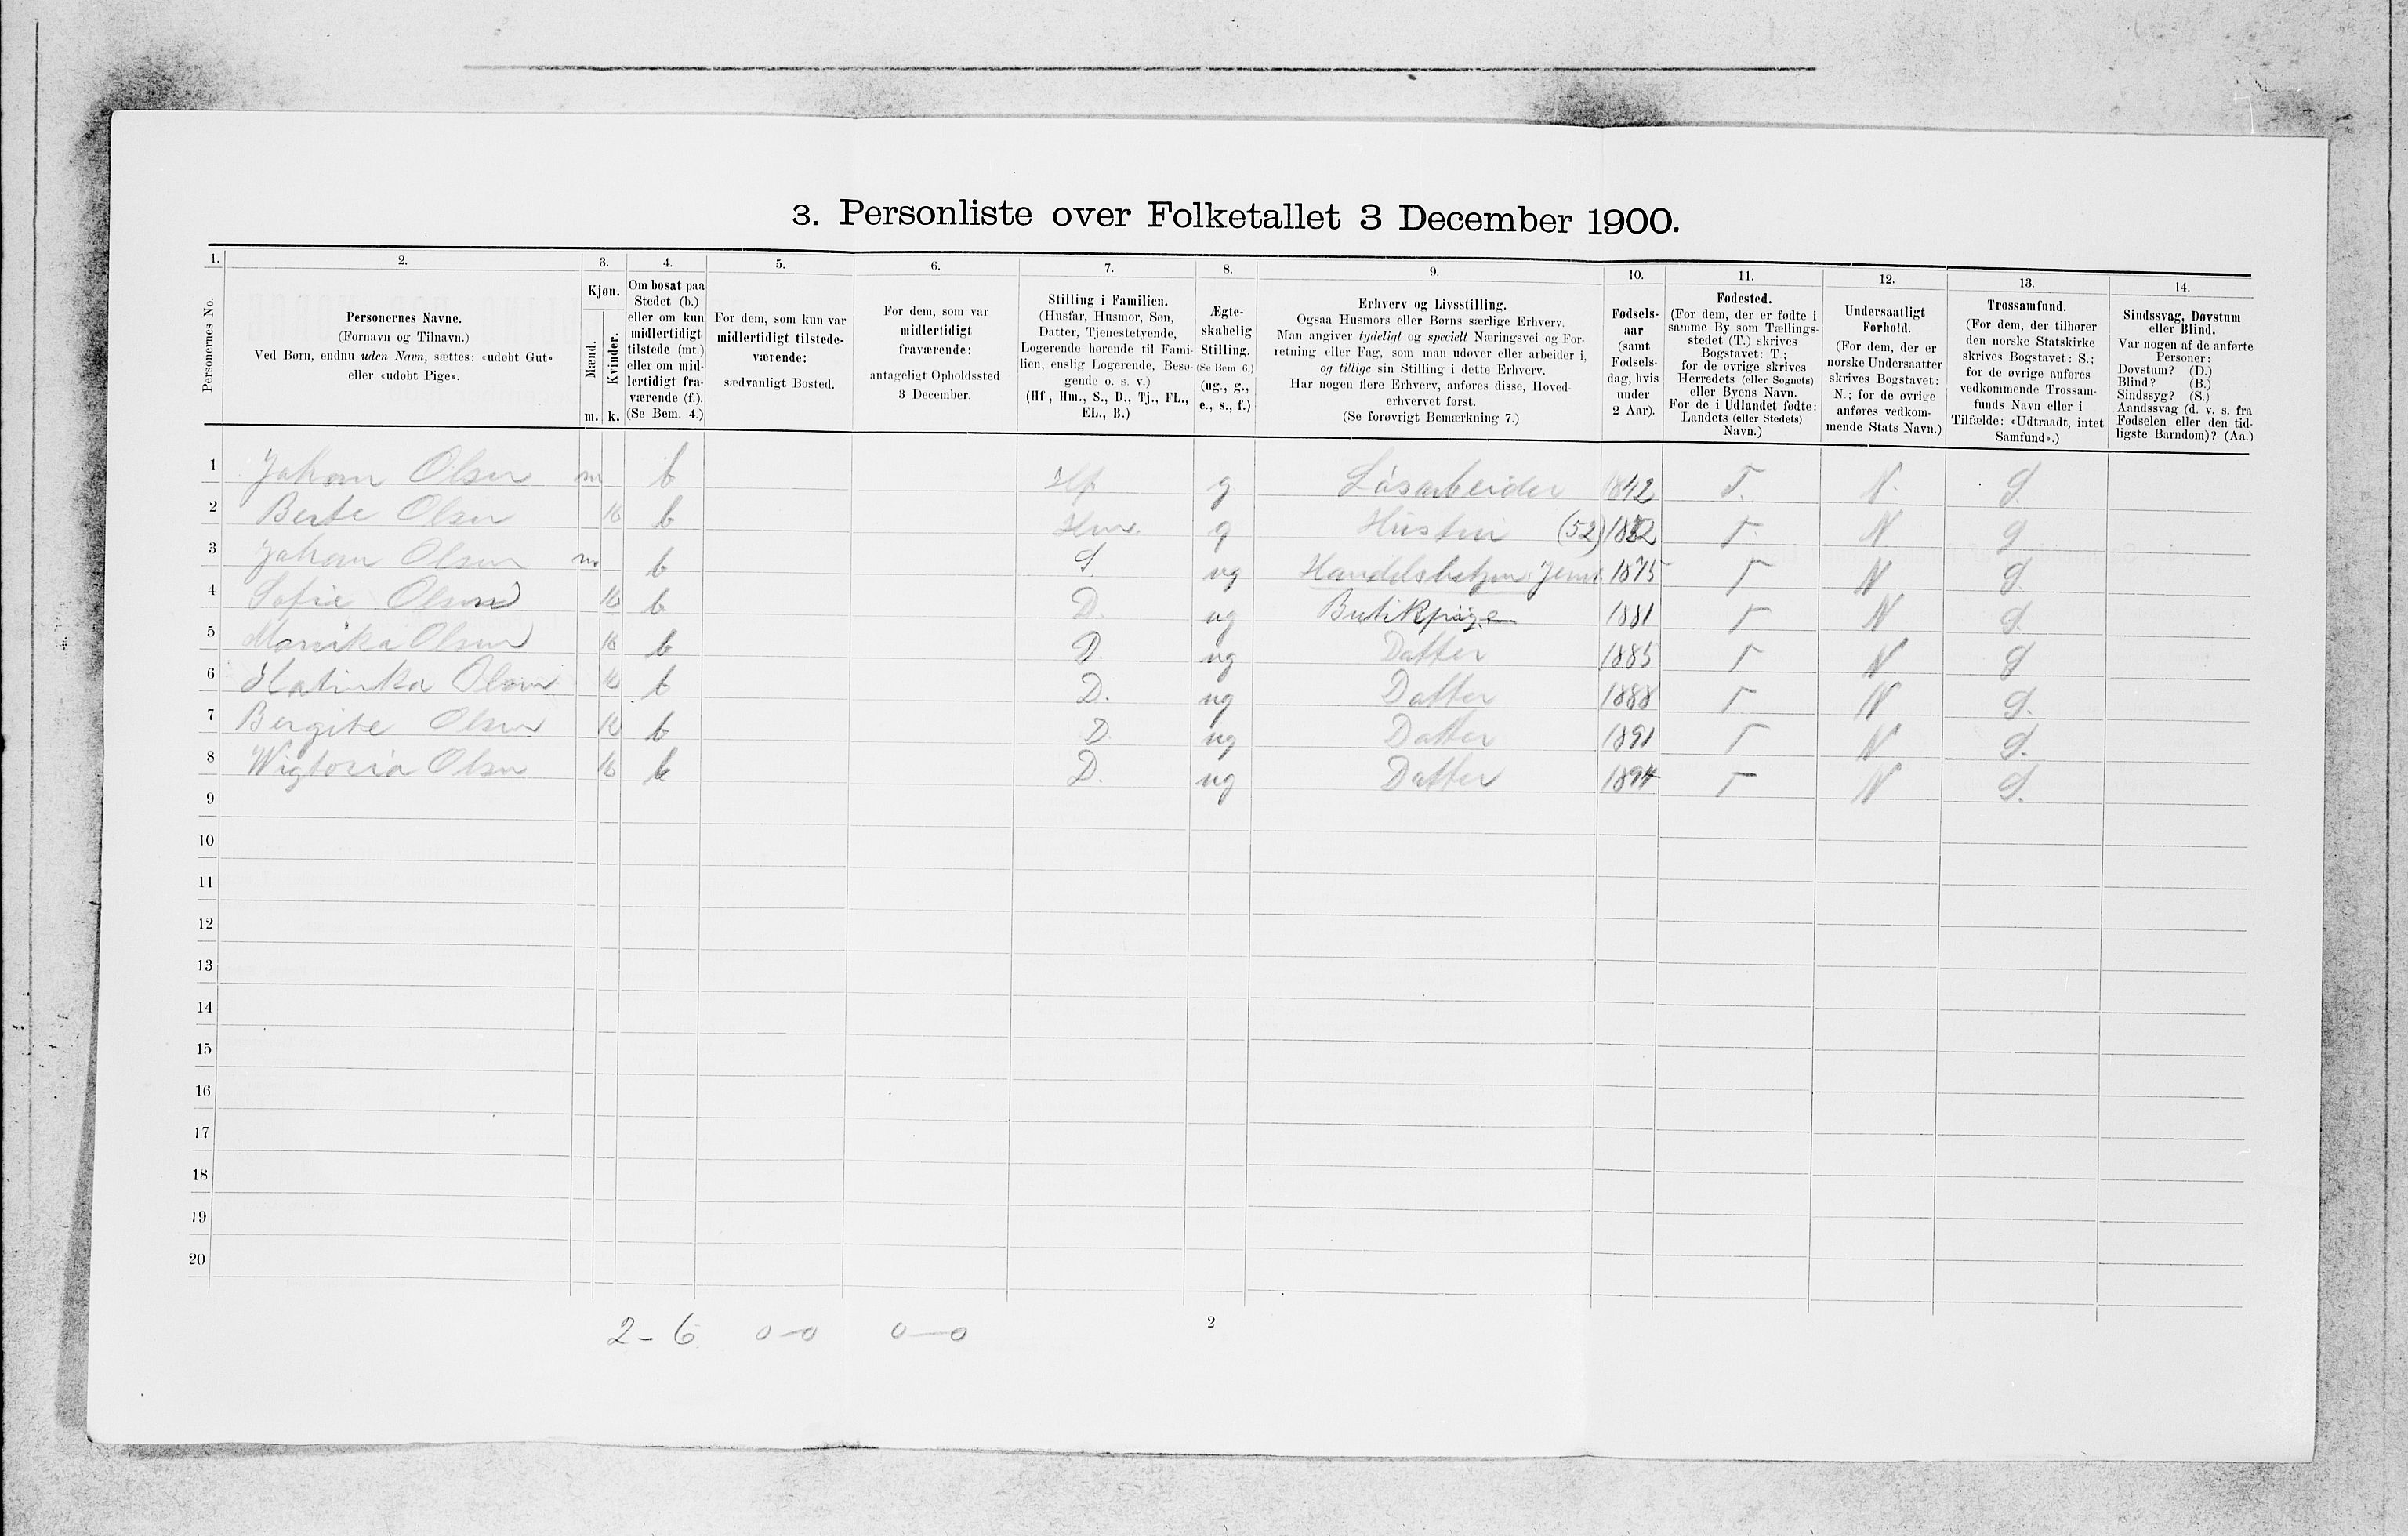 3. Personliste over Folketallet 3 December 1900.
1. 2. 3. 4. 5. 6. 7. 8. 9. 10. 11. 12. 13. 14.
Personernes No.
Personernes Navne.
(Fornavn og Tilnavn.)
Ved Børn, endnu uden Navn, sættes: «udøbt Gut»
eller «udøbt Pige».
Kjøn.
Mænd.
Kvinder.
m. k.
Om bosat paa
Stedet (b.)
eller om kun
midlertidigt
tilstede (mt.)
eller om mid-
lertidigt fra-
værende (f.).
(Se Bem. 4.)
For dem, som kun var
midlertidigt tilstede-
værende:
sædvanligt Bosted.
For dem, som var
midlertidigt
fraværende:
antageligt Opholdssted
3 December.
Stilling i Familien.
(Husfar, Husmor, Søn,
Datter, Tjenestetyende,
Logerende hørende til Fami-
lien, enslig Logerende, Besø-
gende o. s. v.)
(Hf., Hm., S., D., Tj., FL.,
EL., B.)
Ægte-
skabelig
Stilling.
(Se Bem. 6.)
(ug., g.,
e., s., f.)
Erhverv og Livsstilling.
Ogsaa Husmors eller Børns særlige Erhverv.
Man angiver tydeligt og specielt Næringsvei og For-
retning eller Fag, som man udøver eller arbeider i,
og tillige sin Stilling i dette Erhverv.
Har nogen flere Erhverv, anføres disse, Hoved-
erhvervet først.
(Se forøvrigt Bemærkning 7.)
Fødsels-
aar
(samt
Fødsels-
dag, hvis
under
2 Aar).
Fødested.
(For dem, der er fødte i
samme By som Tællings-
stedet (T.) skrives
Bogstavet: T;
for de øvrige skrives
Herredets (eller Sognets)
eller Byens Navn.
For de i Udlandet fødte:
Landets (eller Stedets)
Navn.)
Undersaatligt
Forhold.
(For dem, der er
norske Undersaatter
skrives Bogstavet:
N.; for de øvrige
anføres vedkom-
mende Stats Navn.)
Trossamfund.
(For dem, der tilhører
den norske Statskirke
skrives Bogstavet: S.;
for de øvrige anføres
vedkommende Trossam-
funds Navn eller i
Tilfælde: «Udtraadt, intet
Samfund».)
Sindssvag, Døvstum
eller Blind.
Var nogen af de anførte
Personer:
Døvstum? (D.)
Blind? (B.)
Sindssyg? (S.)
Aandssvag (d. v. s. fra
Fødselen eller den tid-
ligste Barndom)? (Aa.)
1 Johan Olsen m b Hf g Løsarbeider 1842 T. N. S.
2 Berte Olsen k b Hm. g Hustru (52) 1852 T. N S
3 Johan Olsen m. b S. ug Handelsbetjen 1875 T N S.
4 Sofie Olsen k b D. ug Butikpige 1881 T N S.
5 Monika Olsen k b D ug Datter 1885 T N S
6 Katinka Olsen k b D. ug Datter 1888 T N S.
7 Bergite Olsen k b D ug Datter 1891 T N S.
8 Wigtoria Olsen k b D. ug Datter 1894 T N S.
9
10
11
12
13
14
15
16
17
18
19
20
2 - 6 0-0 0-0
2